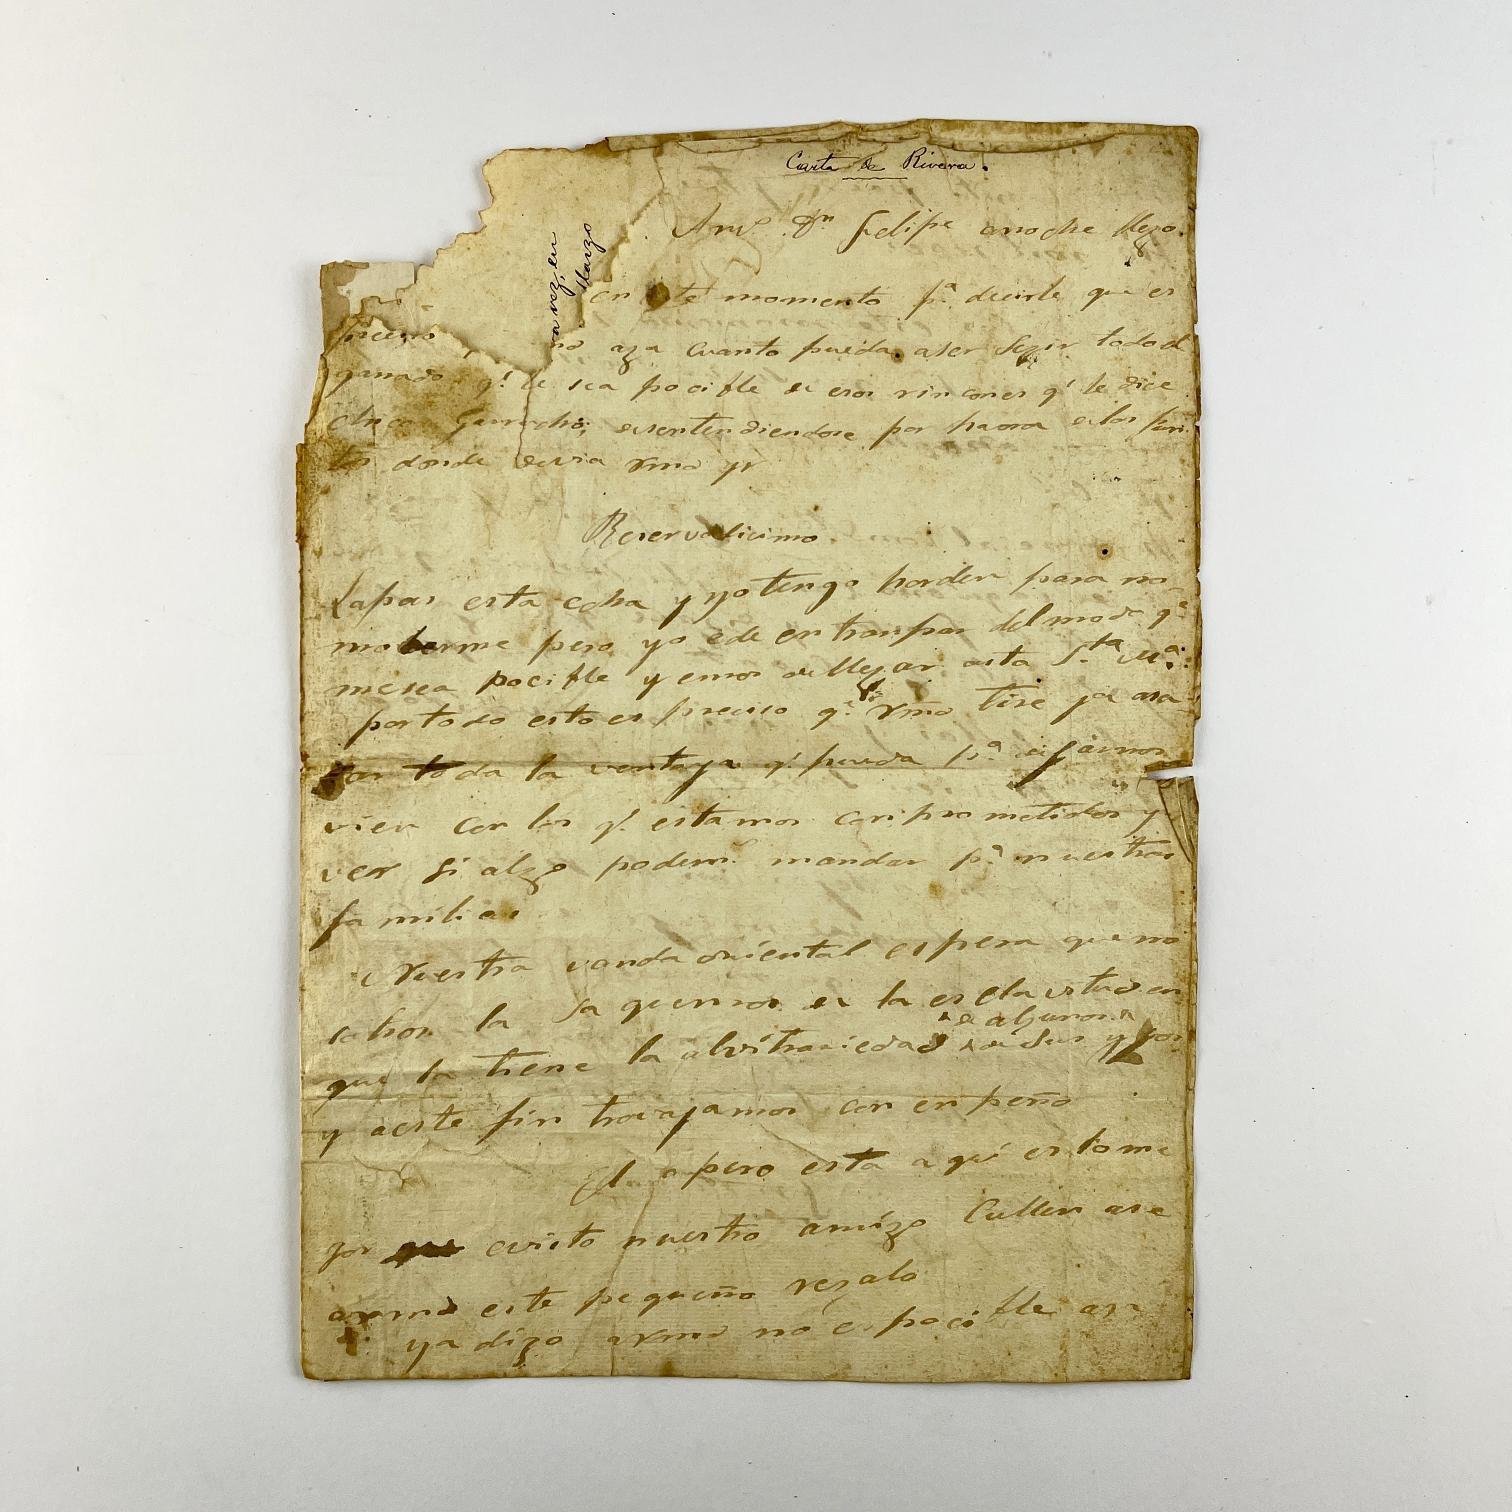 Carta de Rivera.
Amo. Dn Felipe anoche llego.
a vez, en
Marzo
en este momento pa. decirle que es
preciso no aga cuanto pueda aser segir todo el
ganado q.e le sea pocifle de esos rincones q.e le dice
Garucho; desentendiendose por haora de los pun
tos donde devia Vmd yr
Reservadicimo
Lapas esta echa y yo tengo horden para no
moberme pero yo e de entranpar del modo q.e
mesea pocifle y emos de llegar asta S.ta Ma.
por todo esto es preciso q.e Vmd tire pa. asa
toda la ventaja q.e pueda pa. dejarnos
vien con los q.e estamos conprometidos y
ver si algo podemos mandar pa. nuestras
familias
Nuestra vanda oriental espera que no
sotros la saquemos de la esclavitud en
de algunos
que la tiene la alvitrariedad de sus yjos
y aeste fin travajamos con enpeño
El apero esta aqui es lo me
jor que evisto nuestro amigo Cullen ase
avmd este pequeño regalo
ya digo avmd no es pocifle asa